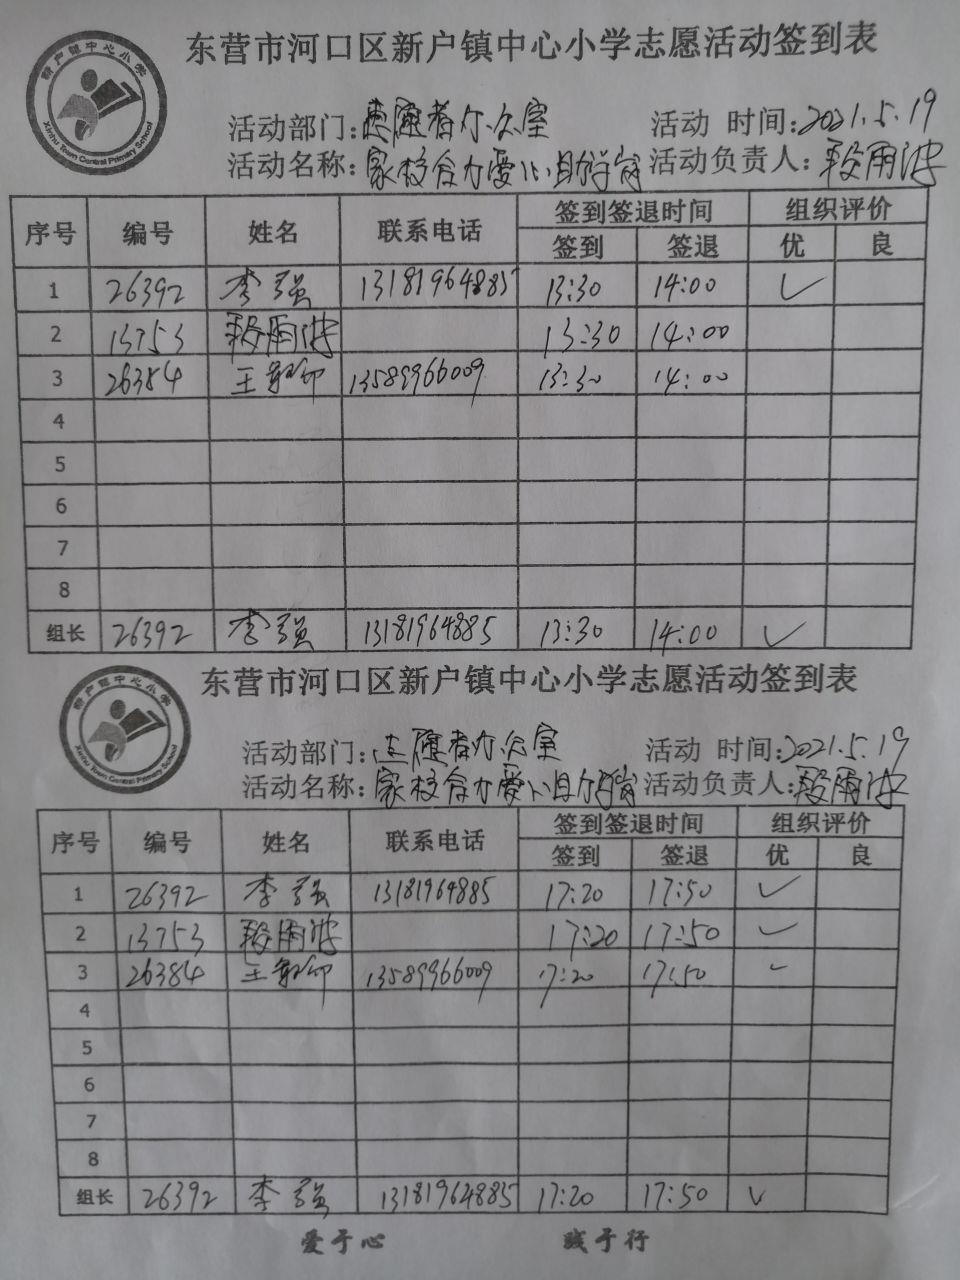 新户镇中心小学
Xinhu Town Central Primary School
东营市河口区新户镇中心小学志愿活动签到表
活动部门:志愿者办公室 活动 时间:2021.5.19
活动名称:家校合力爱心助学岗 活动负责人:段雨波
序号 编号 姓名 联系电话 签到签退时间 组织评价
签到 签退 优 良
1 26392 李强 13181964885 13:30 14:00 ✓
2 13753 段雨波 13:30 14:00
3 26384 王 13589966009 13:30 14:00
4
5
6
7
8
组长 26392 李强 13181964885 13:30 14:00 ✓
新户镇中心小学
Xinhu Town Central Primary School
东营市河口区新户镇中心小学志愿活动签到表
活动部门:志愿者办公室 活动 时间:2021.5.19
活动名称:家校合力爱心助学岗 活动负责人:段雨波
序号 编号 姓名 联系电话 签到签退时间 组织评价
签到 签退 优 良
1 26392 李强 13181964885 17:20 17:50 ✓
2 13753 段雨波 17:20 17:50 ✓
3 26384 王 13589966009 17:20 17:50 ✓
4
5
6
7
8
组长 26392 李强 13181964885 17:20 17:50 ✓
爱于心 践于行